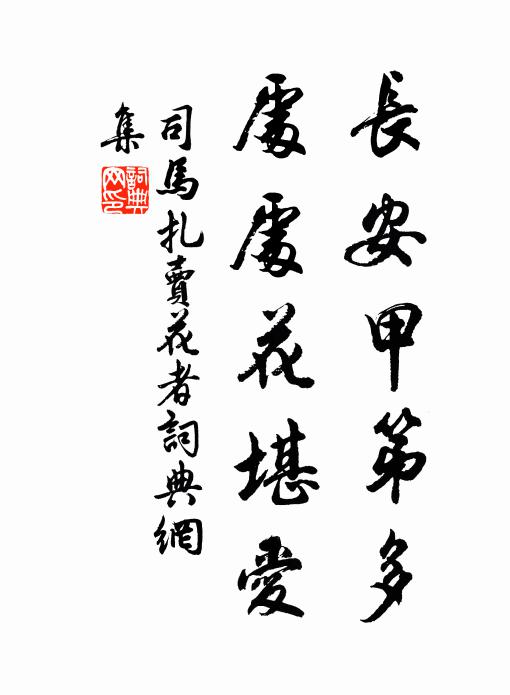 長安甲第多
處處花堪愛
司馬扎賣花者詞典網
集
詞典網印